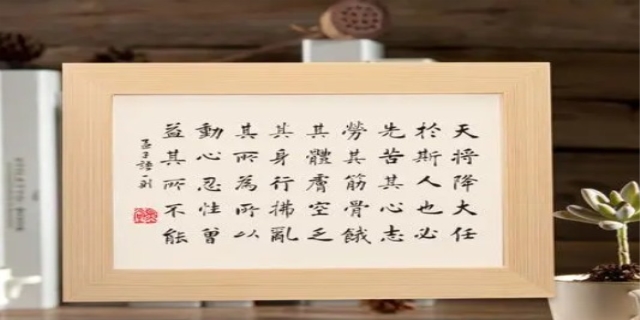 天将降大任
於斯人也必
先苦其心志
勞其筋骨餓
其體膚空乏
其身行拂亂
其所為所以
動心忍性曾
益其所不能
孟子語一則